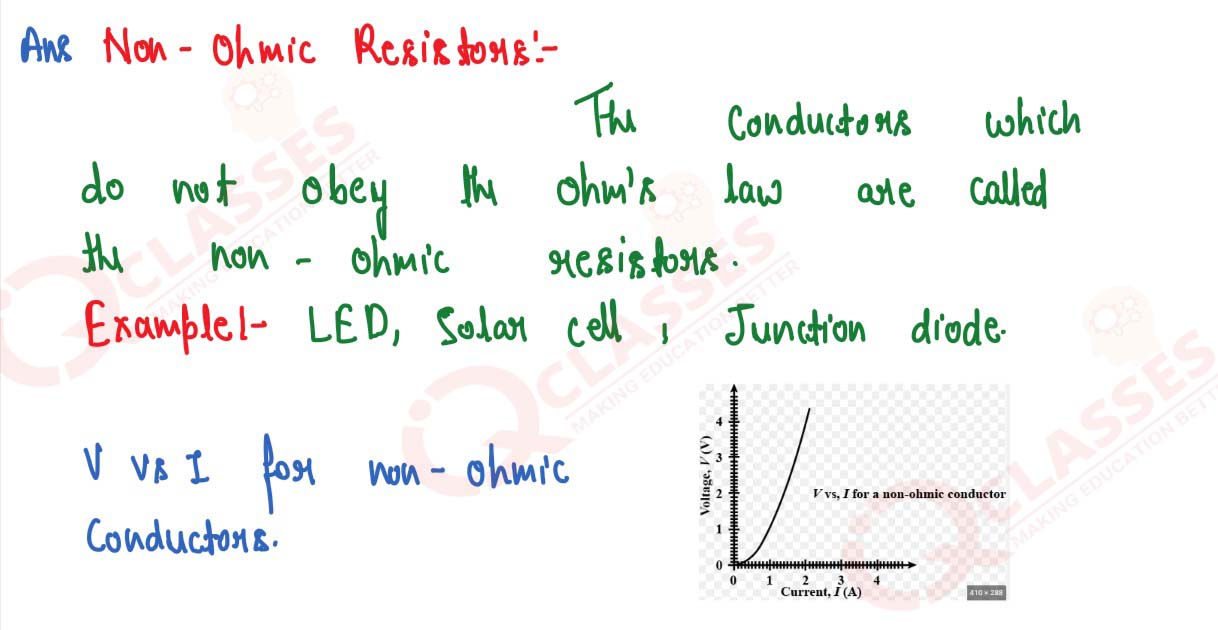 Ans Non - Ohmic Resistors:-
The Conductors which
do not obey the ohm's law are called
the non - ohmic resistors.
Example:- LED, Solar cell, Junction diode.
V vs I for non - ohmic
Conductors.
Voltage, V (V)
4
3
2
1
0
V vs, I for a non-ohmic conductor
0 1 2 3 4
Current, I (A)
410 × 288
iQ CLASSES
MAKING EDUCATION BETTER
iQ CLASSES
MAKING EDUCATION BETTER
CLASSES
MAKING EDUCATION BETT